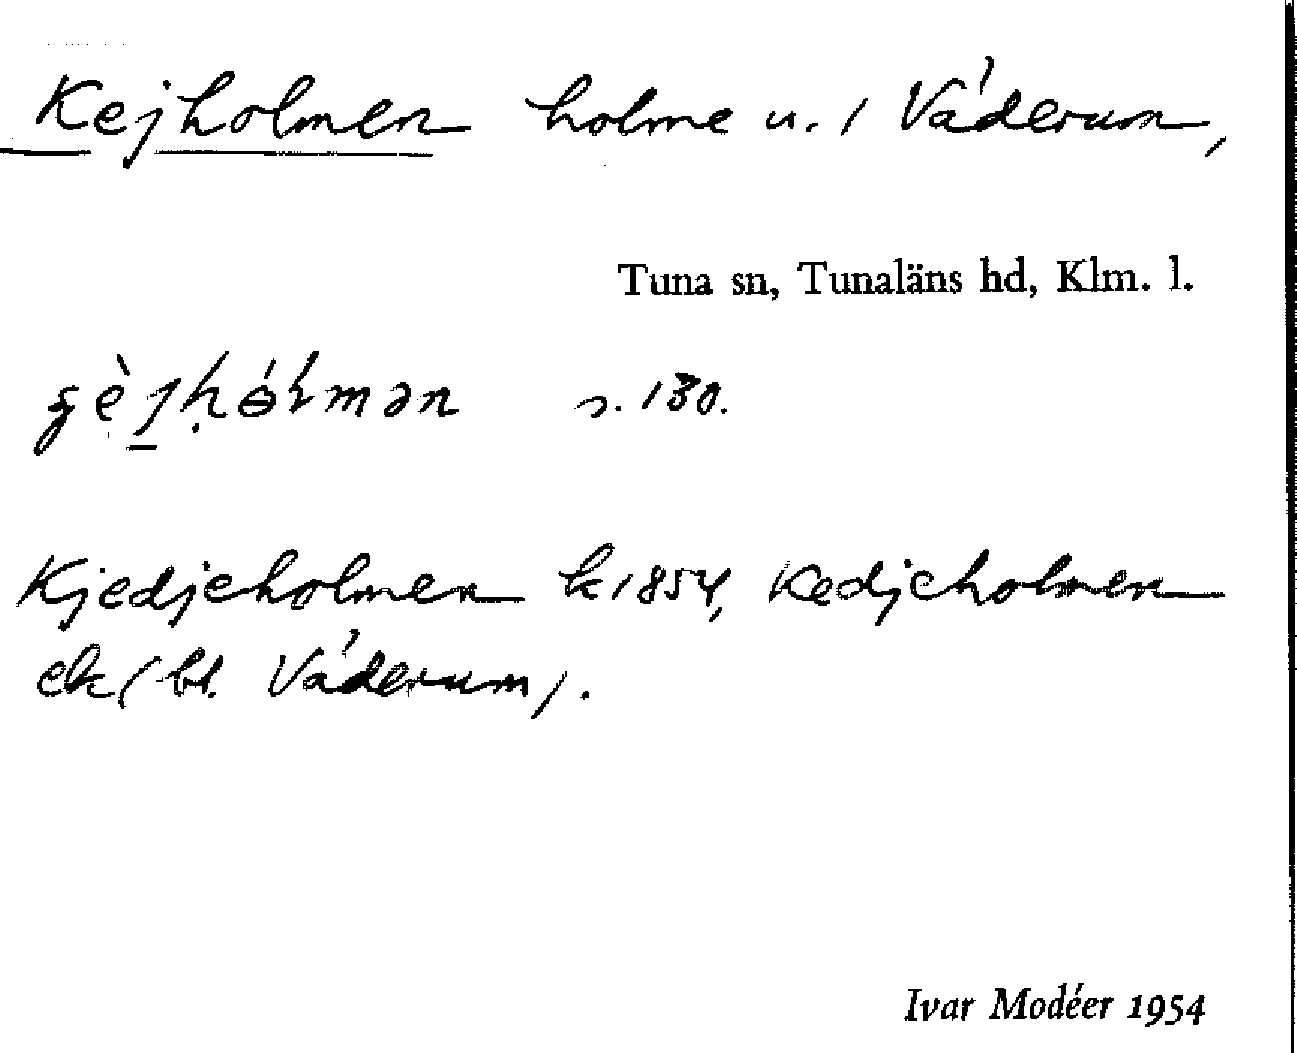 Kejholmen holme u. / Väderum,
Tuna sn, Tunaläns hd, Klm. l.
s. 130.
Kjedjeholmen k 1854, Kedjeholmen
ek (bl. Väderum).
Ivar Modéer 1954